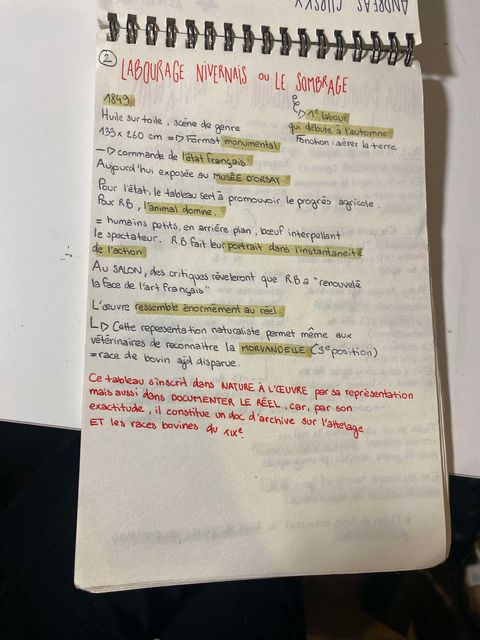 ANDREAS GURSKY
② LABOURAGE NIVERNAIS OU LE SOMBRAGE
1849
1e labour
qui débute à l'automne
Fonction : aérer la terre
Huile sur toile, scène de genre
133 x 260 cm => Format monumental
—> commande de l'état français
Aujourd'hui exposée au MUSÉE D'ORSAY
Pour l'état, le tableau sert à promouvoir le progrès agricole.
Pour RB, l'animal domine.
= humains petits, en arrière plan, bœuf interpellant
le spectateur. RB fait leur portrait dans l'instantaneité
de l'action
Au SALON, des critiques révèleront que RB a "renouvelé
la face de l'art français"
L'œuvre ressemble énormément au réel.
L> Cette representation naturaliste permet même aux
vétérinaires de reconnaitre la MORVANDELLE (3e position)
= race de bovin ajd disparue.
Ce tableau s'inscrit dans NATURE À L'ŒUVRE par sa représentation
mais aussi dans DOCUMENTER LE RÉEL, car, par son
exactitude, il constitue un doc d'archive sur l'attelage
ET les races bovines du XIXe.